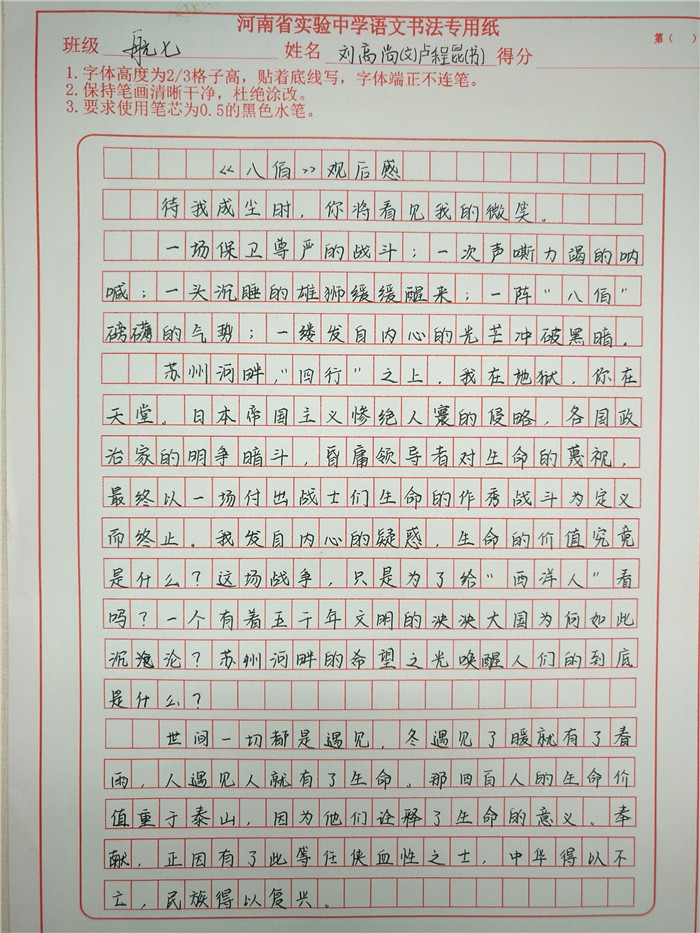 河南省实验中学语文书法专用纸
第（ ）
班级 航七 姓名 刘高尚(文)卢程昆(书) 得分
1.字体高度为2/3格子高，贴着底线写，字体端正不连笔。
2.保持笔画清晰干净，杜绝涂改。
3.要求使用笔芯为0.5的黑色水笔。
《八佰》观后感
待我成尘时，你将看见我的微笑。
一场保卫尊严的战斗；一次声嘶力竭的呐
喊；一头沉睡的雄狮缓缓醒来；一阵“八佰”
磅礴的气势；一缕发自内心的光芒冲破黑暗。
苏州河畔，“四行”之上，我在地狱，你在
天堂。日本帝国主义惨绝人寰的侵略，各国政
治家的明争暗斗，昏庸领导者对生命的蔑视，
最终以一场付出战士们生命的作秀战斗为定义
而终止。我发自内心的疑惑，生命的价值究竟
是什么？这场战争，只是为了给“西洋人”看
吗？一个有着五千年文明的泱泱大国为何如此
沉沦？苏州河畔的希望之光唤醒人们的到底
是什么？
世间一切都是遇见，冬遇见了暖就有了春
雨，人遇见人就有了生命。那四百人的生命价
值重于泰山，因为他们诠释了生命的意义。奉
献，正因有了此等任侠血性之士，中华得以不
亡，民族得以复兴。